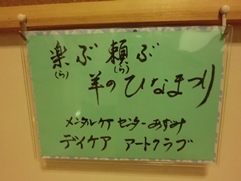 楽ぶ頼ぶ
(ら) (ら)
羊のひなまつり
メンタルケアセンターあすみ
デイケア アートクラブ